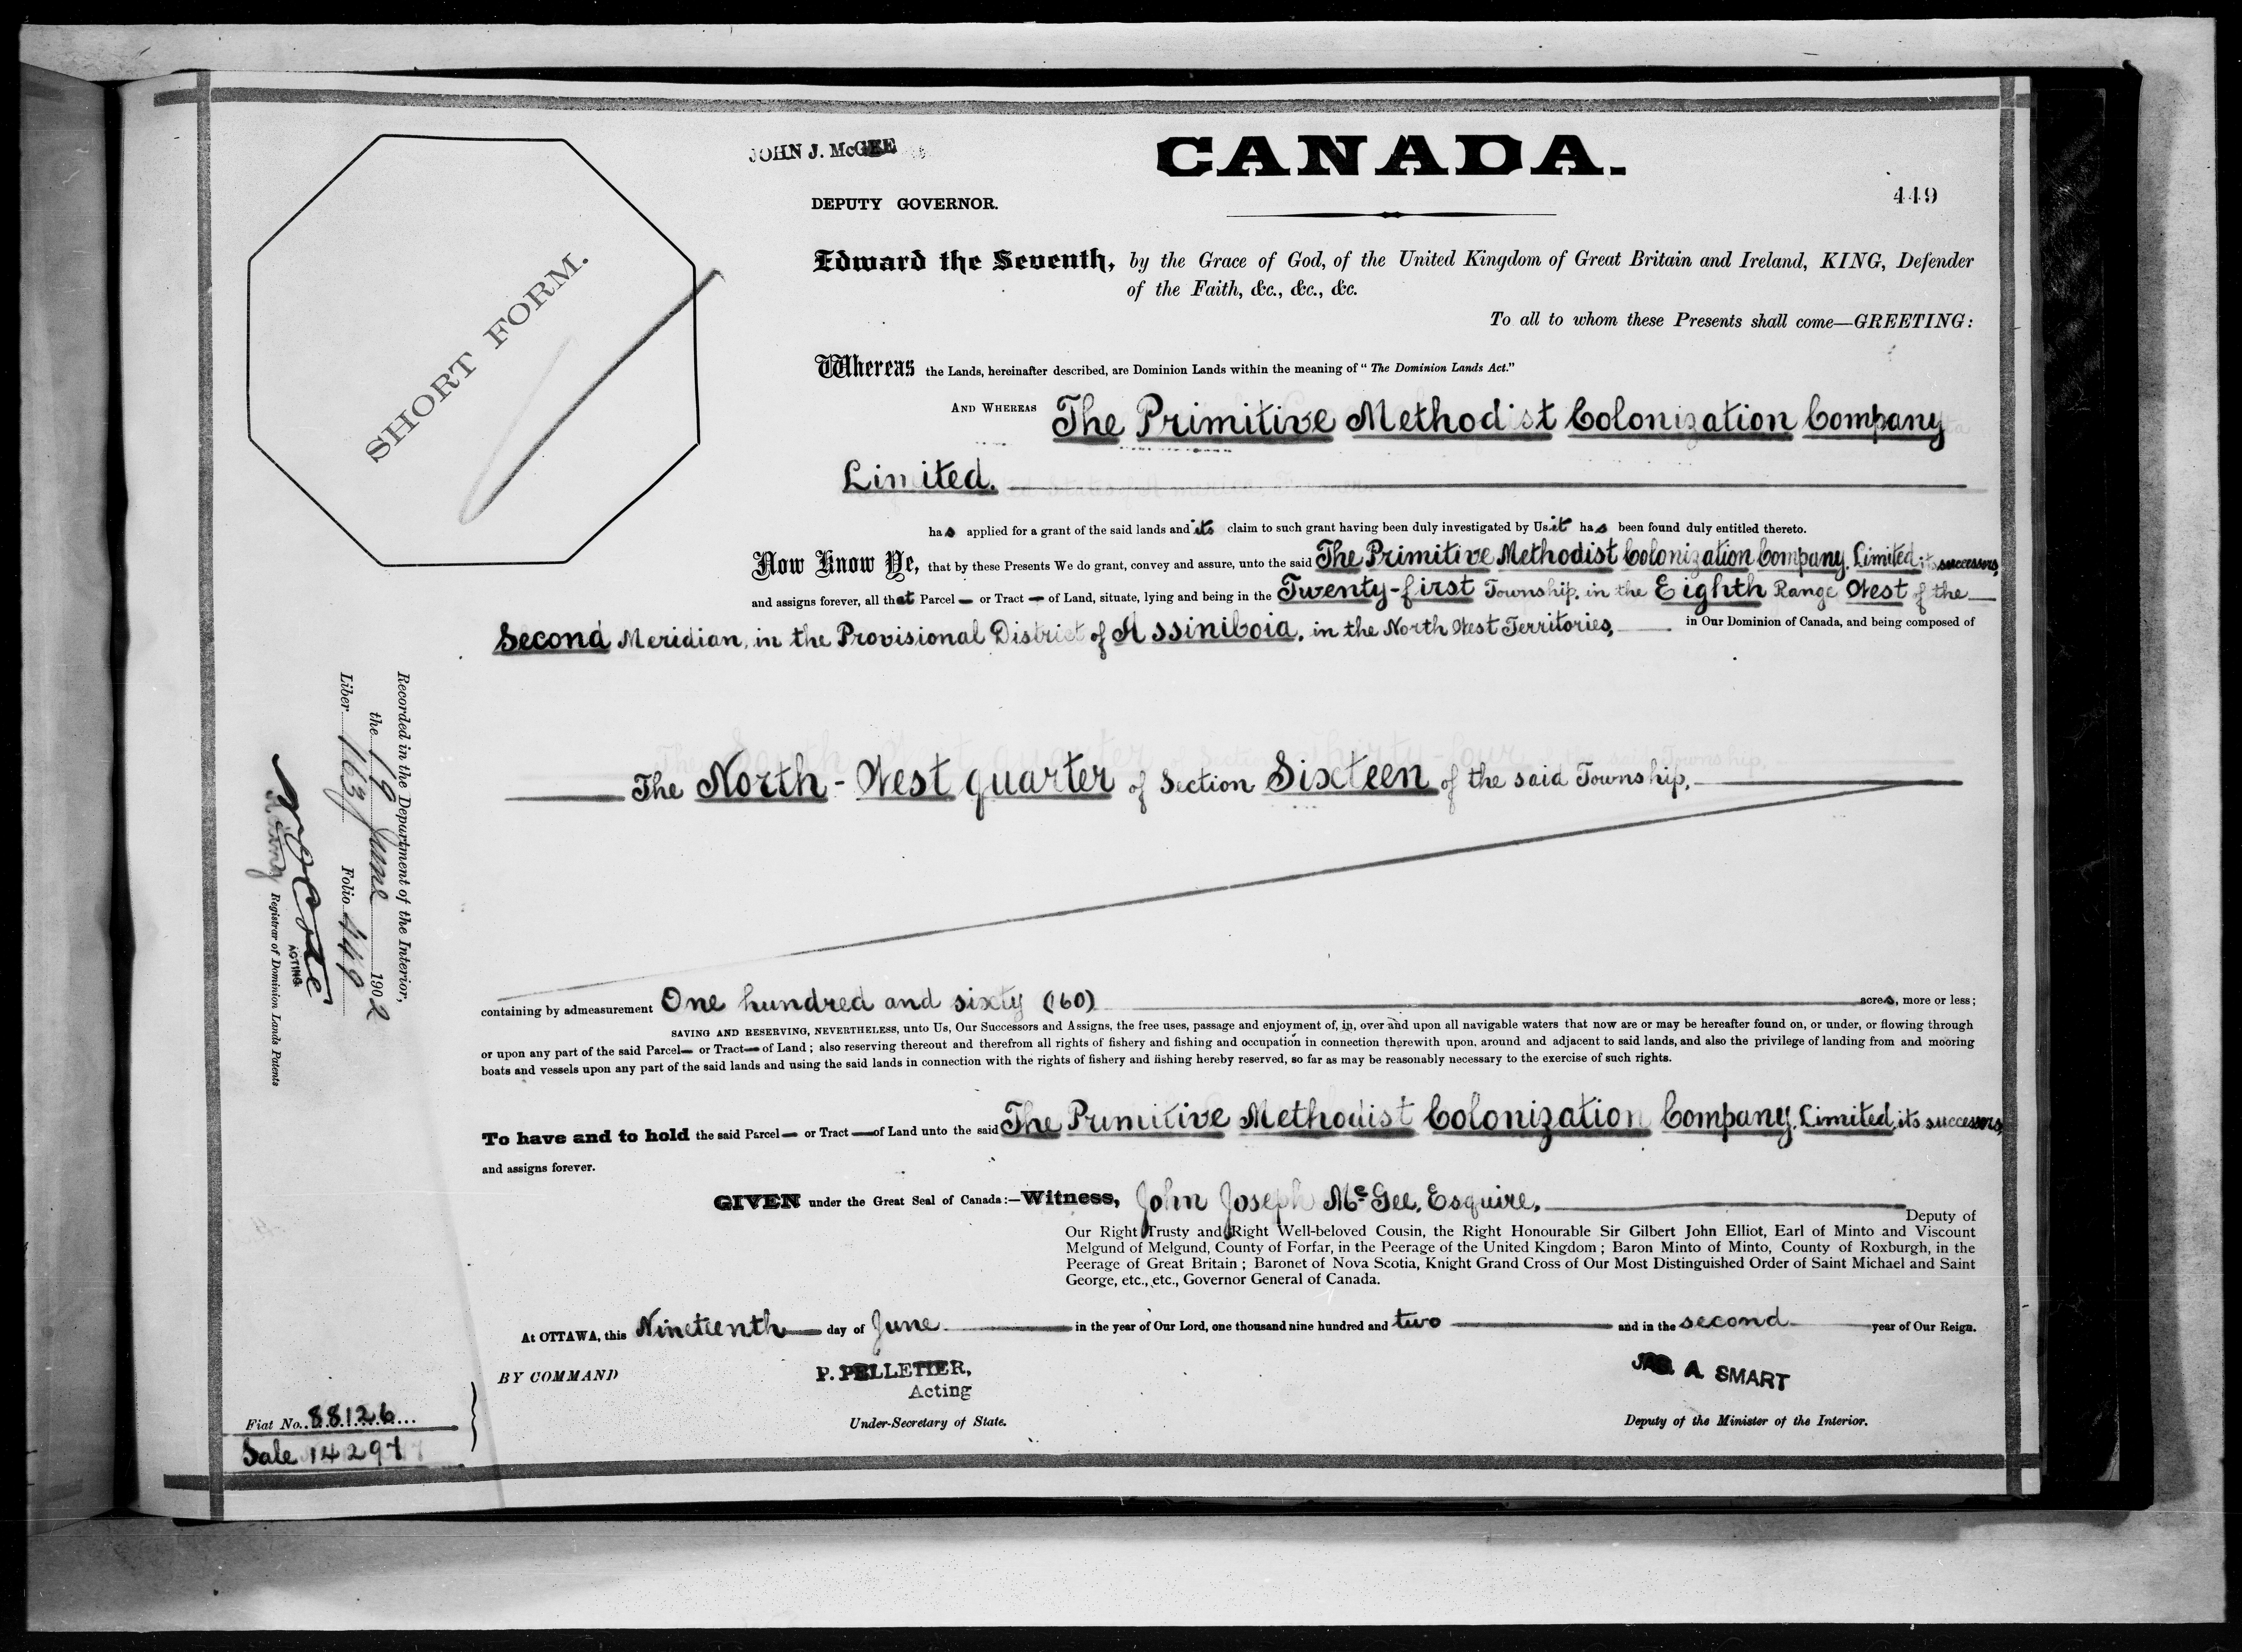 JOHN J. McGEE
CANADA.
DEPUTY GOVERNOR.
449
SHORT FORM.
Edward the Seventh, by the Grace of God, of the United Kingdom of Great Britain and Ireland, KING, Defender
of the Faith, &c., &c., &c.
To all to whom these Presents shall come—GREETING:
Whereas the Lands, hereinafter described, are Dominion Lands within the meaning of "The Dominion Lands Act."
AND WHEREAS The Primitive Methodist Colonization Company
Limited.
has applied for a grant of the said lands and its claim to such grant having been duly investigated by Us it has been found duly entitled thereto.
Now Know Ye, that by these Presents We do grant, convey and assure, unto the said The Primitive Methodist Colonization Company, Limited, its successors,
and assigns forever, all that Parcel — or Tract — of Land, situate, lying and being in the Twenty-first Township, in the Eighth Range West of the
Second Meridian, in the Provisional District of Assiniboia, in the North West Territories, in Our Dominion of Canada, and being composed of
The North-West quarter of Section Sixteen of the said Township,
containing by admeasurement One hundred and sixty (160) acres, more or less;
SAVING AND RESERVING, NEVERTHELESS, unto Us, Our Successors and Assigns, the free uses, passage and enjoyment of, in, over and upon all navigable waters that now are or may be hereafter found on, or under, or flowing through
or upon any part of the said Parcel— or Tract— of Land; also reserving thereout and therefrom all rights of fishery and fishing and occupation in connection therewith upon, around and adjacent to said lands, and also the privilege of landing from and mooring
boats and vessels upon any part of the said lands and using the said lands in connection with the rights of fishery and fishing hereby reserved, so far as may be reasonably necessary to the exercise of such rights.
To have and to hold the said Parcel— or Tract —of Land unto the said The Primitive Methodist Colonization Company, Limited, its successors,
and assigns forever.
GIVEN under the Great Seal of Canada:—Witness, John Joseph McGee, Esquire,
Deputy of
Our Right Trusty and Right Well-beloved Cousin, the Right Honourable Sir Gilbert John Elliot, Earl of Minto and Viscount
Melgund of Melgund, County of Forfar, in the Peerage of the United Kingdom; Baron Minto of Minto, County of Roxburgh, in the
Peerage of Great Britain; Baronet of Nova Scotia, Knight Grand Cross of Our Most Distinguished Order of Saint Michael and Saint
George, etc., etc., Governor General of Canada.
At OTTAWA, this Nineteenth day of June in the year of Our Lord, one thousand nine hundred and two and in the second year of Our Reign.
BY COMMAND
P. PELLETIER,
Acting
Under-Secretary of State.
JAS. A. SMART
Deputy of the Minister of the Interior.
Fiat No. 88126
Sale 14297
Recorded in the Department of the Interior,
the 19 June 1902
Liber 163 Folio 449
ACTING
Registrar of Dominion Lands Patents